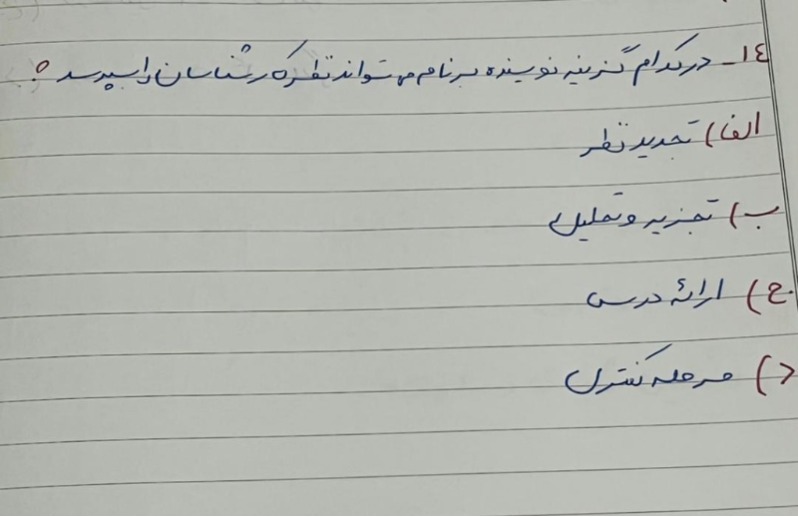 ١٤- در کدام گزینه نویسنده برنامه می تواند نظر کارشناسان را بپرسد ؟
الف) تجدید نظر
ب) تجزیه و تحلیل
ج) ارائه درس
د) مرحله کنترل